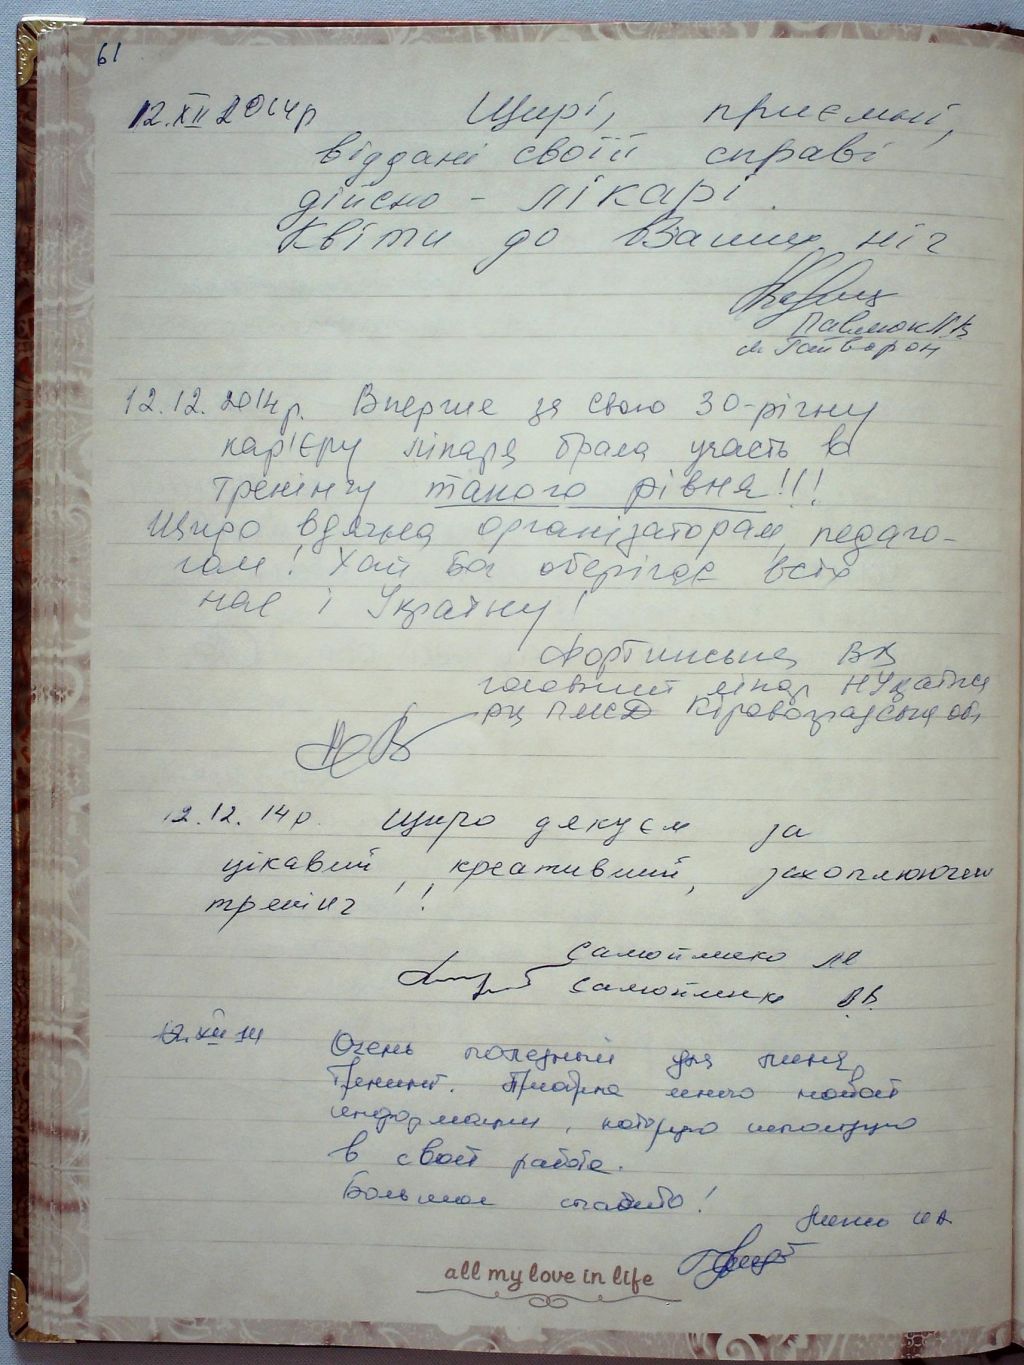 61
12.XII 2014р Щирі, приємні,
віддані своїй справі
дійсно - лікарі.
Квіти до Ваших ніг
Павлюк
м. Гайворон
12.12.2014р. Вперше за свою 30-річну
кар'єру лікаря брала участь в
тренінгу такого рівня!!!
Щиро вдячна організаторам, педаго-
гам! Хай Бог оберігає всіх
нас і Україну!
ВВ
головний лікар
ПМСД Кіровоградська обл
12.12.14р. Щиро дякуєм за
цікавий, креативний, захоплюючий
тренінг!
12.XII 14 Очень полезный для меня
Тренинг. много новой
информации, которую использую
в своей работе.
Большое спасибо!
all my love in life